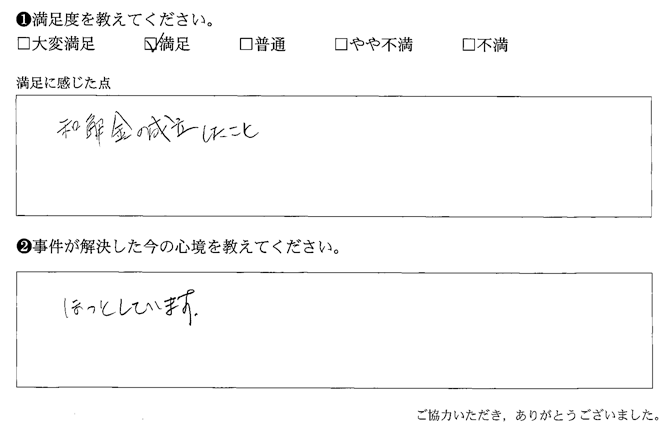 ❶満足度を教えてください。
□大変満足 ☑満足 □普通 □やや不満 □不満
満足に感じた点
和解金の成立したこと
❷事件が解決した今の心境を教えてください。
ほっとしています.
ご協力いただき，ありがとうございました。